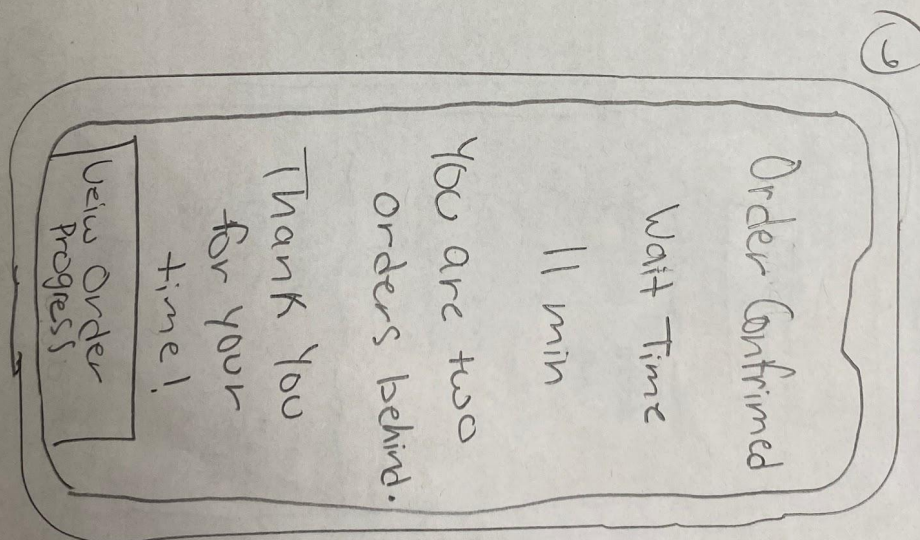 6
Order Confrimed
Wait Time
11 min
You are two
orders behind.
Thank you
for your
time!
Veiw Order
Progress